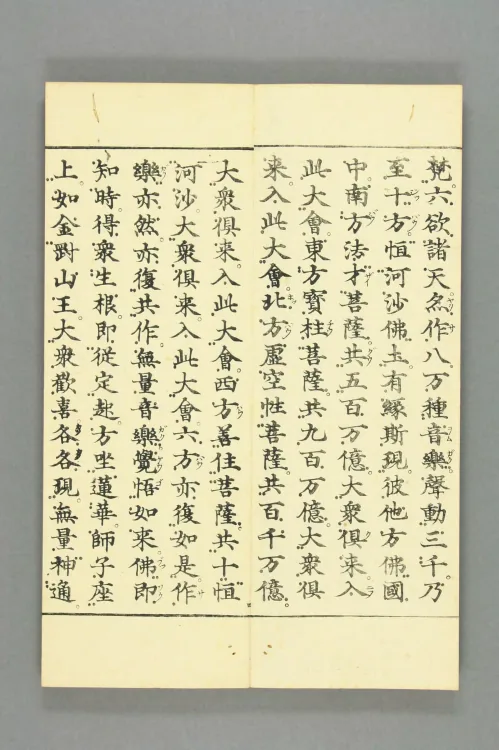 梵六欲諸天尒作八万種音樂聲動三千乃
至十方恒河沙佛土有縁斯現彼他方佛國
中南方法才菩薩共五百万億大衆俱来入
此大會東方寳柱菩薩共九百万億大衆俱
来入此大會北方虛空性菩薩共百千万億
大衆俱来入此大會西方善住菩薩共十恒
河沙大衆俱来入此大會六方亦復如是作
樂亦然亦復共作無量音樂覺悟如来佛即
知時得衆生根即從定起方坐蓮華師子座
上如金對山王大衆歡喜各各現無量神通